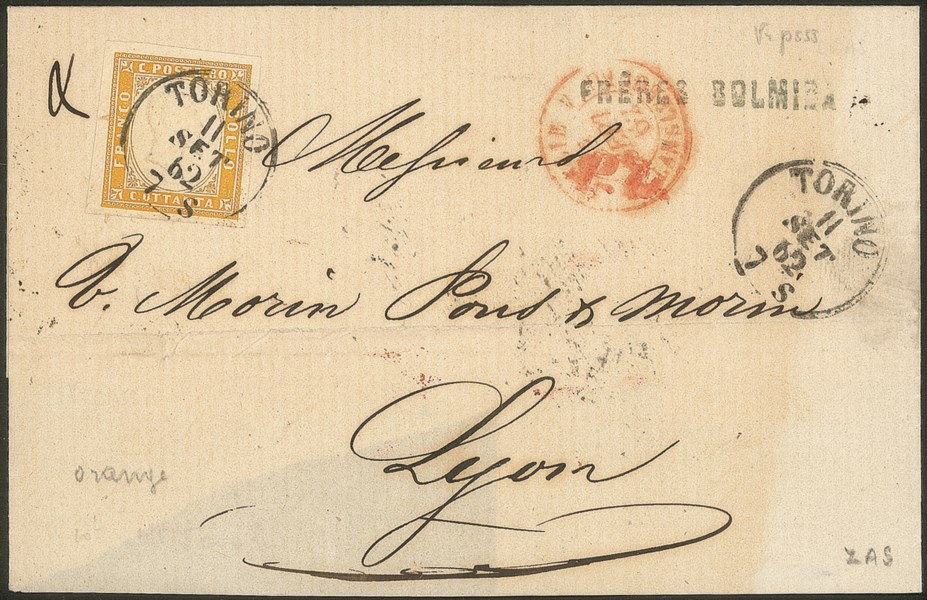 C. POSTE 80
FRANCO
BOLLO
C. OTTANTA
TORINO
11
SET
62
7 S
FRÈRES BOLMIDA
Messieurs
TORINO
11
SET
62
7 S
V. Morin Pons & Morin
Lyon
orange
ZAS